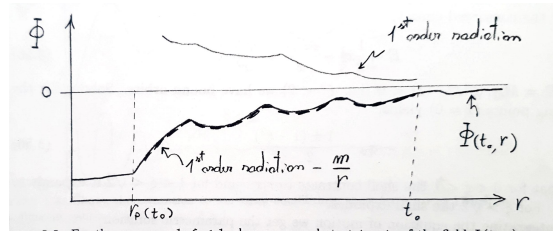 Φ
1st order radiation
0
Φ(t₀, r)
1st order radiation - m/r
r
rₚ(t₀)
t₀